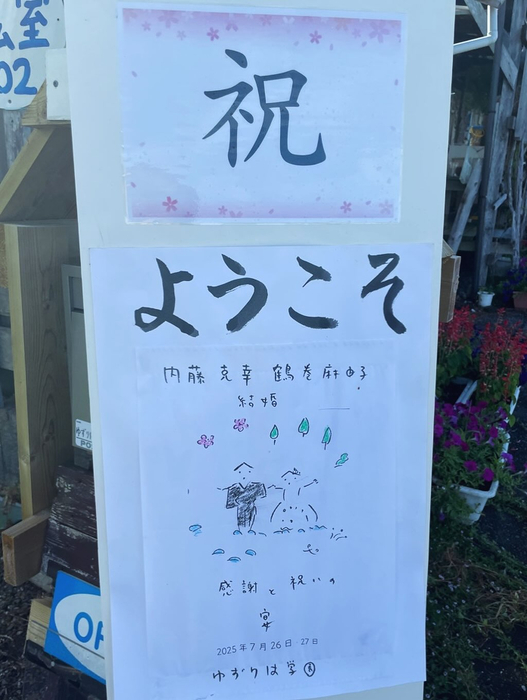 室
02
祝
ようこそ
内藤 克幸 鶴巻 麻由子
結婚
感謝と祝いの
宴
2025年7月26日・27日
ゆずりは学園